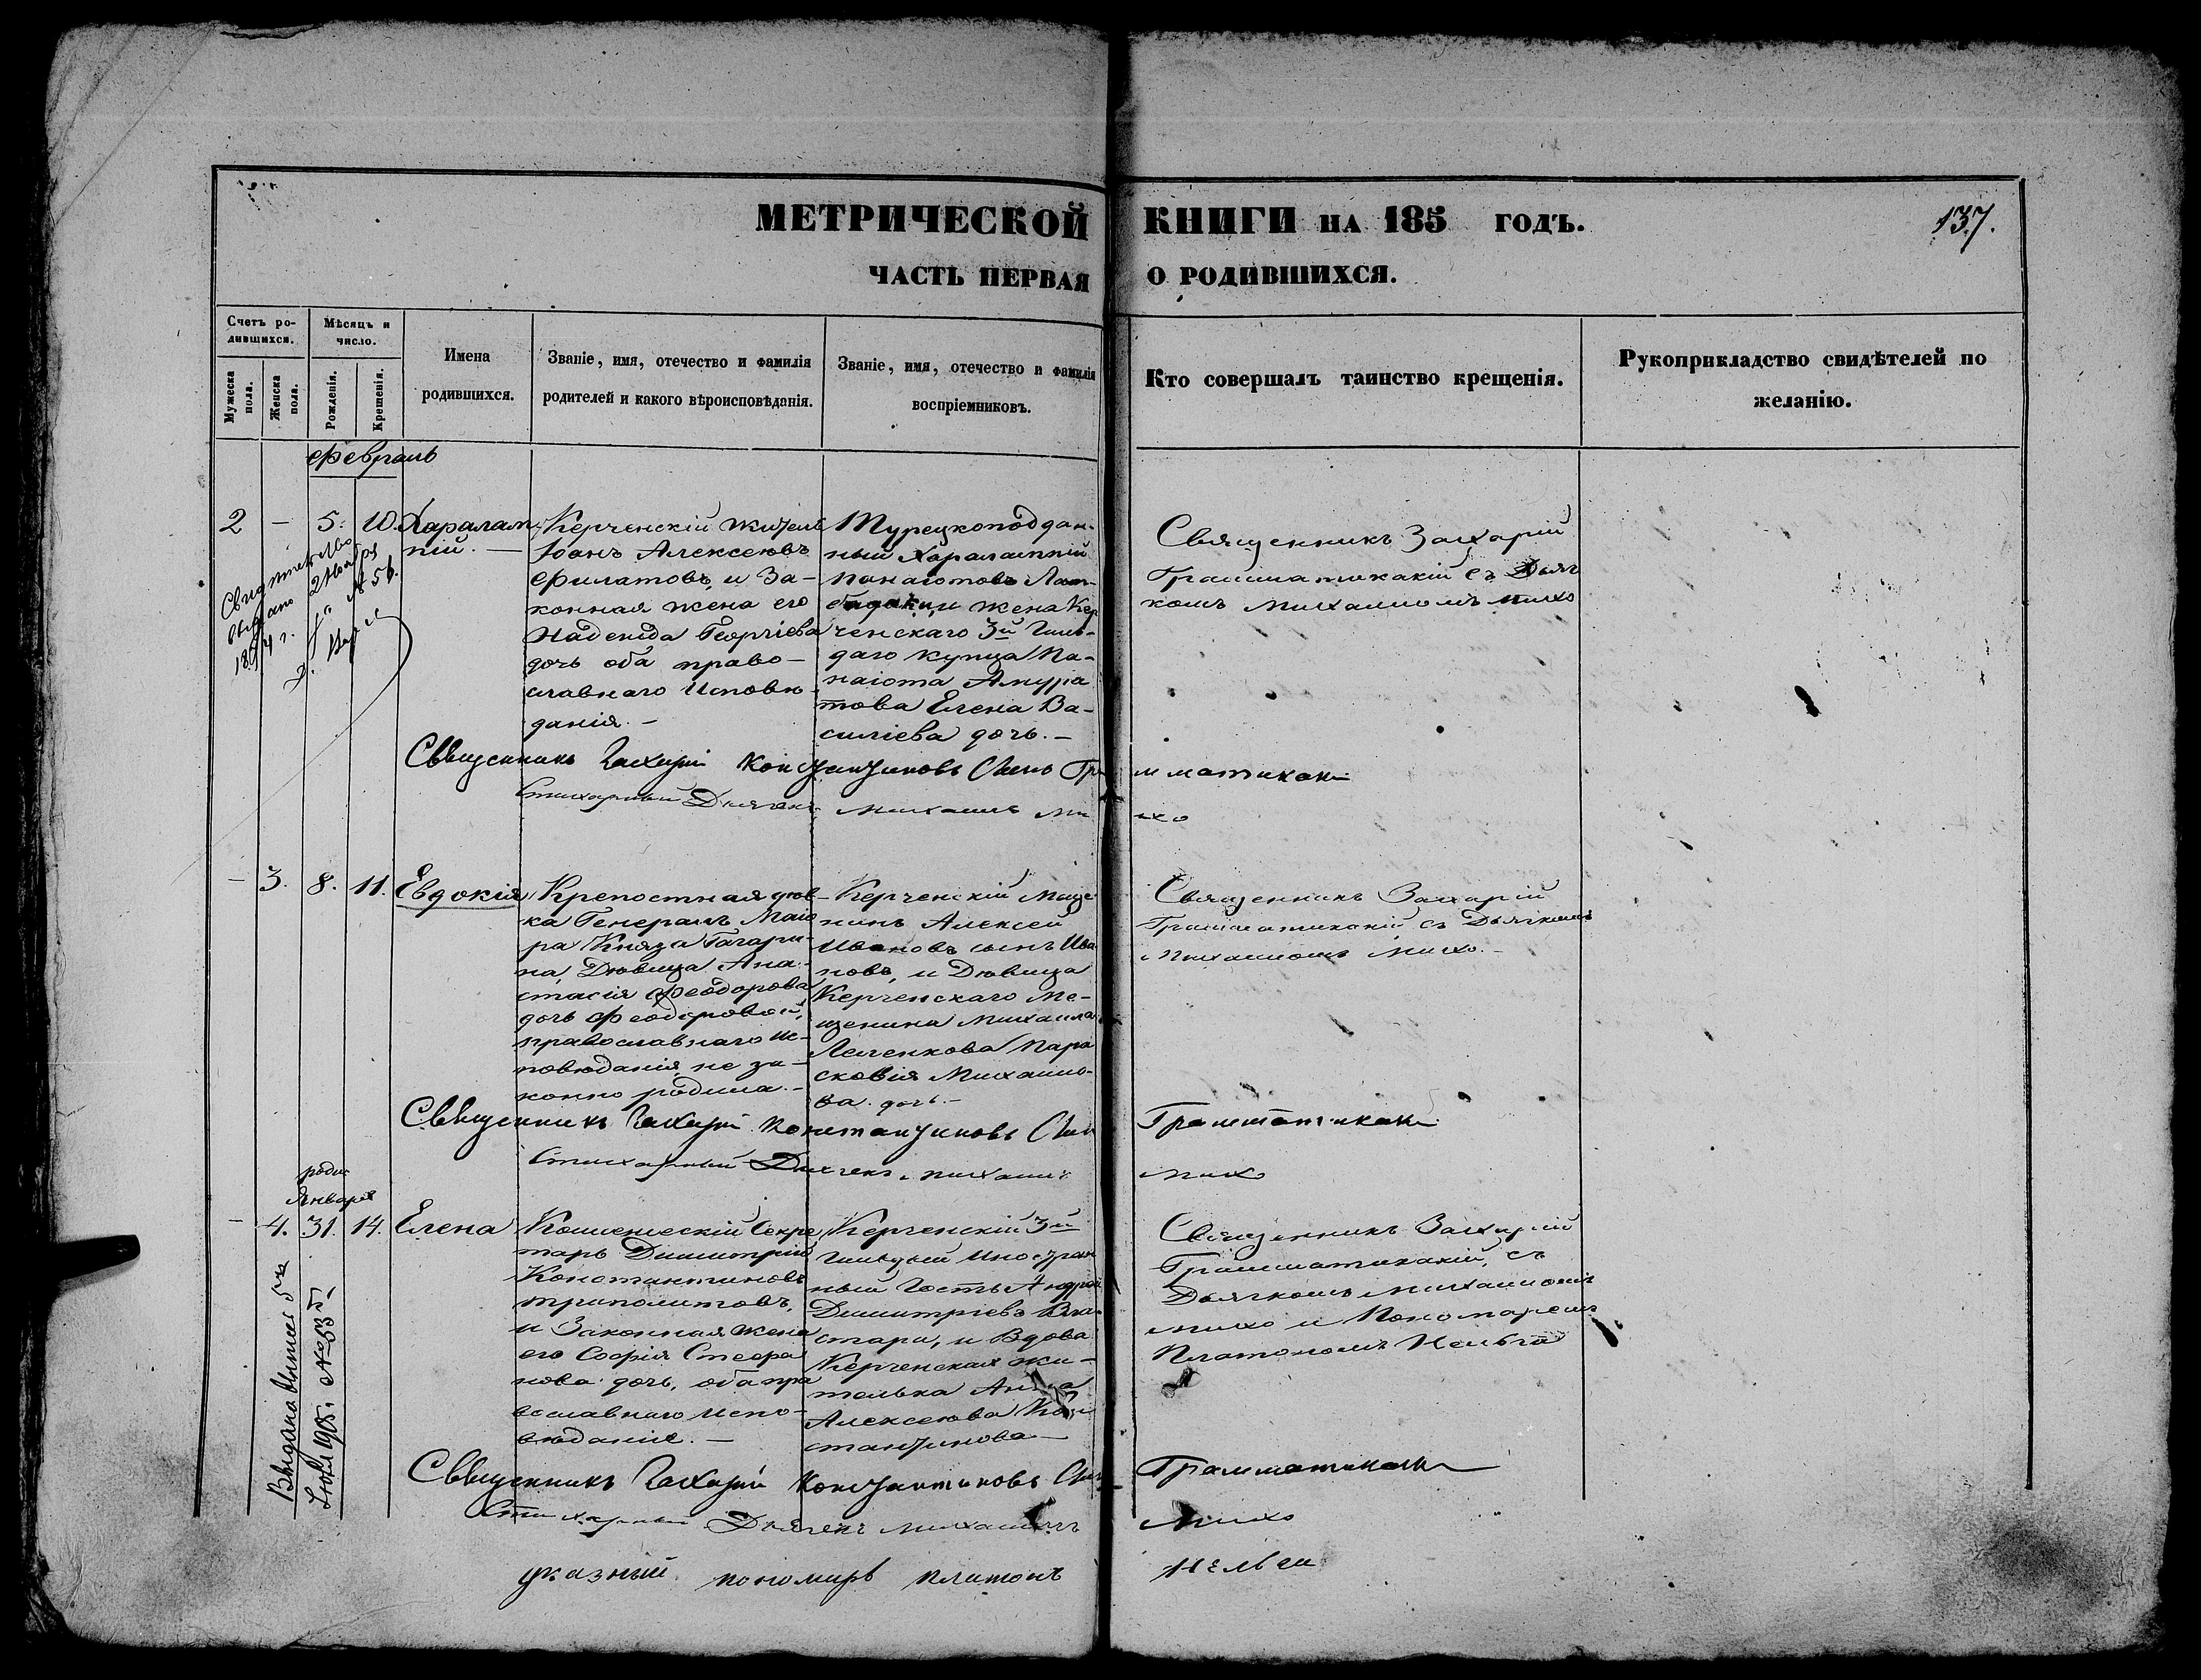 МЕТРИЧЕСКОЙ КНИГИ НА 185 ГОДЪ.
137.
ЧАСТЬ ПЕРВАЯ О РОДИВШИХСЯ.
Счетъ ро-
дившихся.
Мужеска пола.
Женска пола.
Мѣсяцъ и
число.
Рожденія.
Крещенія.
Имена
родившихся.
Званіе, имя, отечество и фамилія
родителей и какого вѣроисповѣданія.
Званіе, имя, отечество и фамилія
воспріемниковъ.
Кто совершалъ таинство крещенія.
Рукоприкладство свидѣтелей по
желанію.
Февраль
2 — 5. 10.
Харалам
пій. —
Керченскій житель
Іоанъ Алексеювъ
Филатовъ и За-
конная жена его
Надежда Георгіева
дочь оба право-
славнаго Исповѣ-
данія. —
Турецкоподдан-
ный Харалампій
Панаіотовъ
жена Кер
ченскаго 3й Гиль-
даго купца Па-
наіота Амура
това Елена Ва-
силіева дочь. —
Священникъ Захарій
Грамматикакій съ Дьяч
комъ Михаиломъ Михо
Свидѣтельство
выдано 2 Ноября
№ 56.
Священникъ Захарій Константиновъ Сынъ Грамматикаки
Стихарный Дьячекъ Михаилъ Михо
— 3. 8. 11.
Евдокія
Крепостная дюв-
ка Генералъ Маіо
ра Князя Гагари-
на, Дювица Ана-
стасія Феодорова
дочь Феодоровой,
православнаго Ис-
повюданія, не за-
конно родила. —
Керченскій Меще
нинъ Алексей
Ивановъ сынъ Ива
новъ, и Дювица
Керченскаго Ме-
щенина Михаила
Леленкова Пара
сковія Михаило-
ва дочь. —
Священникъ Захарій
Грамматикакій съ Дьячкомъ
Михаиломъ Михо. —
Священникъ Захарій Константиновъ Сынъ Грамматикаки
Стихарный Дьячекъ Михаилъ Михо
роди
Января
— 4. 31. 14.
Елена
Коллежескій Секре
тарь Димитрій
Константиновъ
Триполитовъ,
и Законная жена
его Софія Стефа
нова дочь, оба пра
вославнаго Испо-
вюданія. —
Керченскій 3й
Гильдіи Иностран
ный Гость Андрей
Димитріевъ Вла-
стари, и Вдова
Керченская жи-
телька Анна
Алексеюва Кон
стантинова —
Священникъ Захарій
Грамматикакій, съ
Дьячкомъ Михаиломъ
Михо и Пономаремъ
Платономъ Нельга
Выдано
1908. № 635.
Священникъ Захарій Константиновъ Сынъ Грамматикаки
Стихарный Дьячекъ Михаилъ Михо
указный пономарь Платонъ Нельги